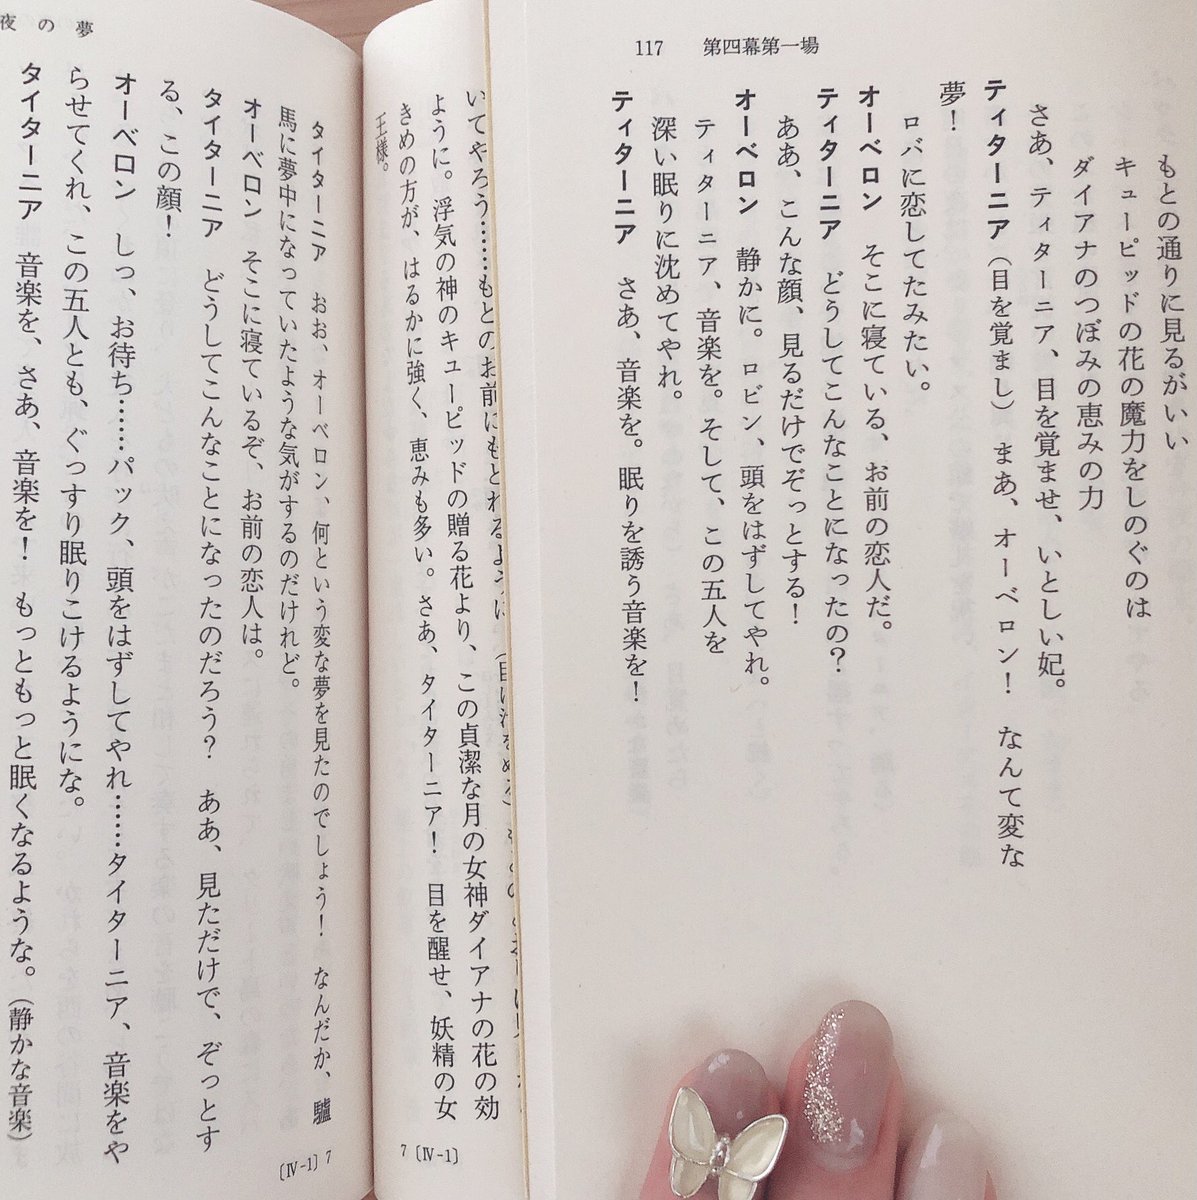 117 第四幕第一場
もとの通りに見るがいい
キューピッドの花の魔力をしのぐのは
ダイアナのつぼみの恵みの力
さあ、ティターニア、目を覚ませ、いとしい妃。
ティターニア（目を覚まし）まあ、オーベロン！ なんて変な
夢！
ロバに恋してたみたい。
オーベロン そこに寝ている、お前の恋人だ。
ティターニア どうしてこんなことになったの？
ああ、こんな顔、見るだけでぞっとする！
オーベロン 静かに。ロビン、頭をはずしてやれ。
ティターニア、音楽を。そして、この五人を
深い眠りに沈めてやれ。
ティターニア さあ、音楽を。眠りを誘う音楽を！
夜の夢
いてやろう……もとのお前にもどれるように
ように。浮気の神のキューピッドの贈る花より、この貞潔な月の女神ダイアナの花の効
きめの方が、はるかに強く、恵みも多い。さあ、タイターニア！ 目を醒せ、妖精の女
王様。
タイターニア おお、オーベロン、何という変な夢を見たのでしょう！ なんだか、驢
馬に夢中になっていたような気がするのだけれど。
オーベロン そこに寝ているぞ、お前の恋人は。
タイターニア どうしてこんなことになったのだろう？ ああ、見ただけで、ぞっとす
る、この顔！
オーベロン しっ、お待ち……パック、頭をはずしてやれ……タイターニア、音楽をや
らせてくれ、この五人とも、ぐっすり眠りこけるようにな。
タイターニア 音楽を、さあ、音楽を！ もっともっと眠くなるような。（静かな音楽）
7〔Ⅳ-1〕
〔Ⅳ-1〕7